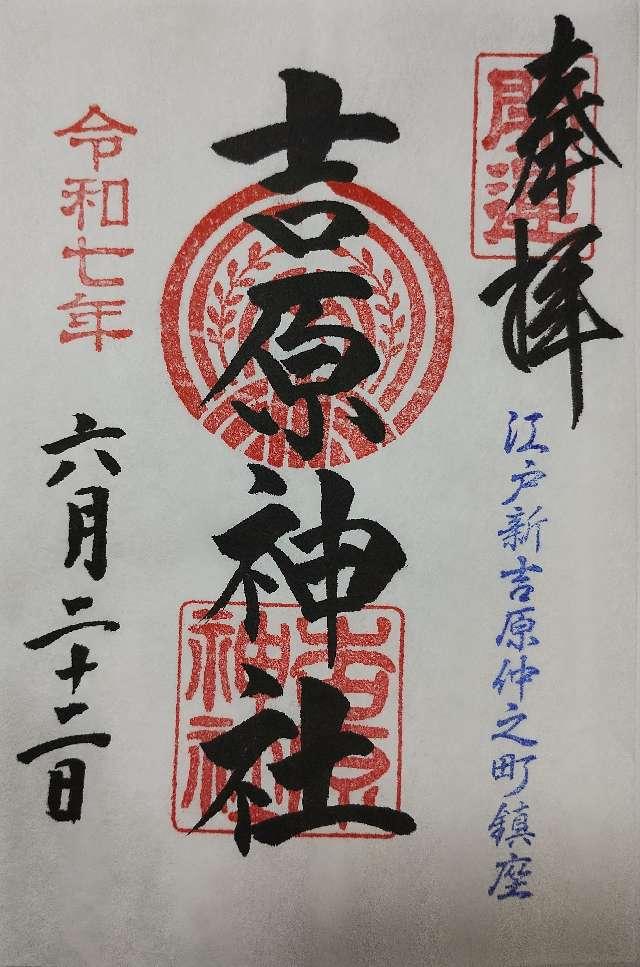 奉拝
開運
江戸新吉原仲之町鎮座
吉原神社
吉原
神社
令和七年
六月二十二日